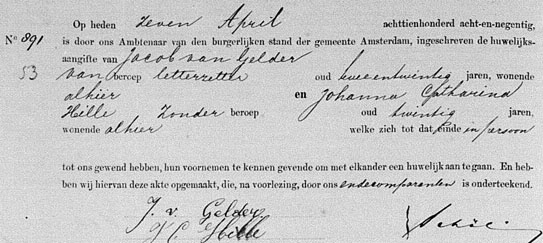 Op heden zeven April achttienhonderd acht-en-negentig,
No 891 is door ons Ambtenaar van den burgerlijken stand der gemeente Amsterdam, ingeschreven de huwelijks-
aangifte van Jacob van Gelder
53 van beroep letterzetter oud tweeentwintig jaren, wonende
alhier en Johanna Catharina
Hille Zonder beroep oud twintig jaren,
wonende alhier welke zich tot dat einde in persoon
tot ons gewend hebben, hun voornemen te kennen gevende om met elkander een huwelijk aan te gaan. En heb-
ben wij hiervan deze akte opgemaakt, die, na voorlezing, door ons en de comparanten is onderteekend.
J. v. Gelder
J C Hille